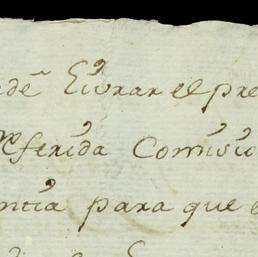 de Livrar el pre
referida Comisio
ntia para que